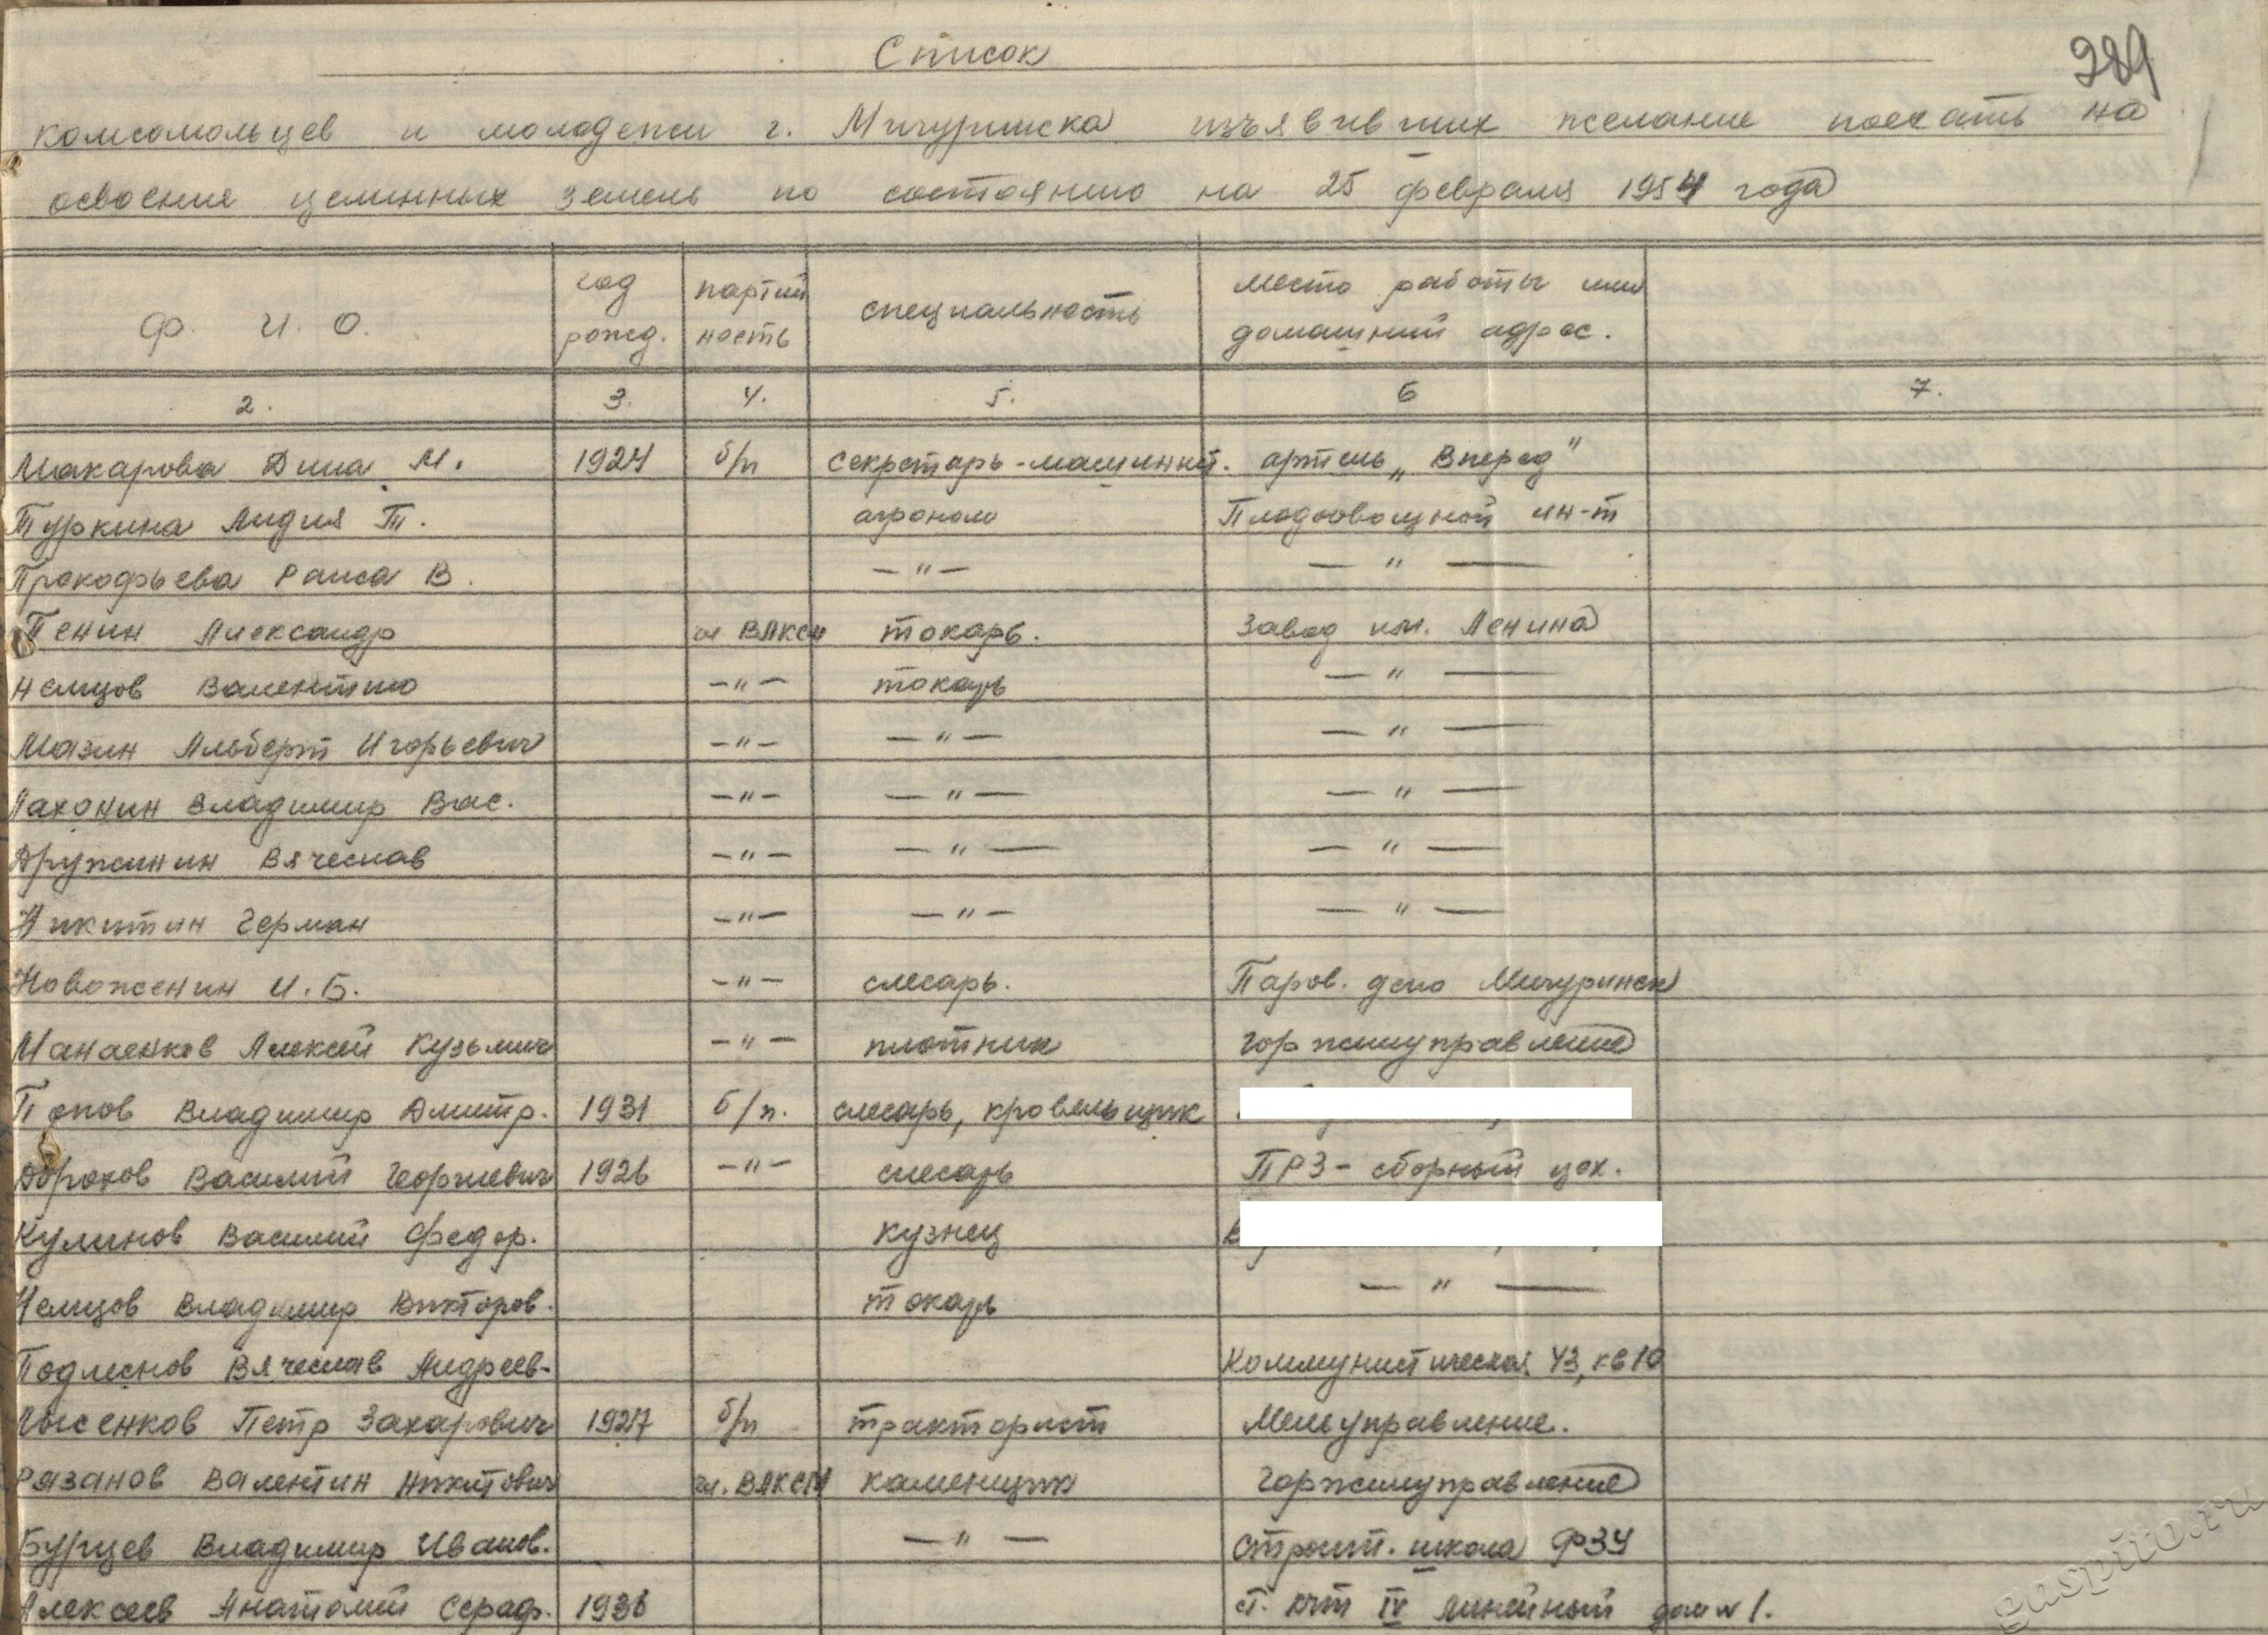 289
Список
комсомольцев и молодежи г. Мичуринска изъявивших желание поехать на
освоение целинных земель по состоянию на 25 февраля 1954 года
Ф. И. О. год рожд. партий ность специальность место работы или домашний адрес.
2. 3. 4. 5. 6 7.
Макарова Дина М. 1924 б/п секретарь-машинист. артель „Вперед"
Туркина Лидия Т. агроном Плодоовощной ин-т
Прокофьева Раиса В. — " — — " —
Пенин Александр чл ВЛКСМ токарь. Завод им. Ленина
Немцов Валентин — " — токарь — " —
Мазин Альберт Игорьевич — " — — " — — " —
Пахонин Владимир Вас. — " — — " — — " —
Дружинин Вячеслав — " — — " — — " —
Никитин Герман — " — — " — — " —
Новоженин И. Б. — " — слесарь. Паров. депо Мичуринск
Манаенков Алексей Кузьмич — " — плотник Горжилуправление
Попов Владимир Дмитр. 1931 б/п. слесарь, кровельщик
Дорохов Василий Георгиевич 1926 — " — слесарь ПРЗ - сборный цех.
Кулинов Василий Федор. кузнец В
Немцов Владимир Викторов. токарь — " —
Подлеснов Вячеслав Андреев- Коммунистическая 43, кв 10
Лысенков Петр Захарович 1927 б/п тракторист Мельуправление.
Рязанов Валентин Никитович чл. ВЛКСМ каменщик Горжилуправление
Бурцев Владимир Иванов. — " — Строит. школа ФЗУ
Алексеев Анатолий Сераф. 1936 ст. IV линейный дом № 1.
gaspito.ru